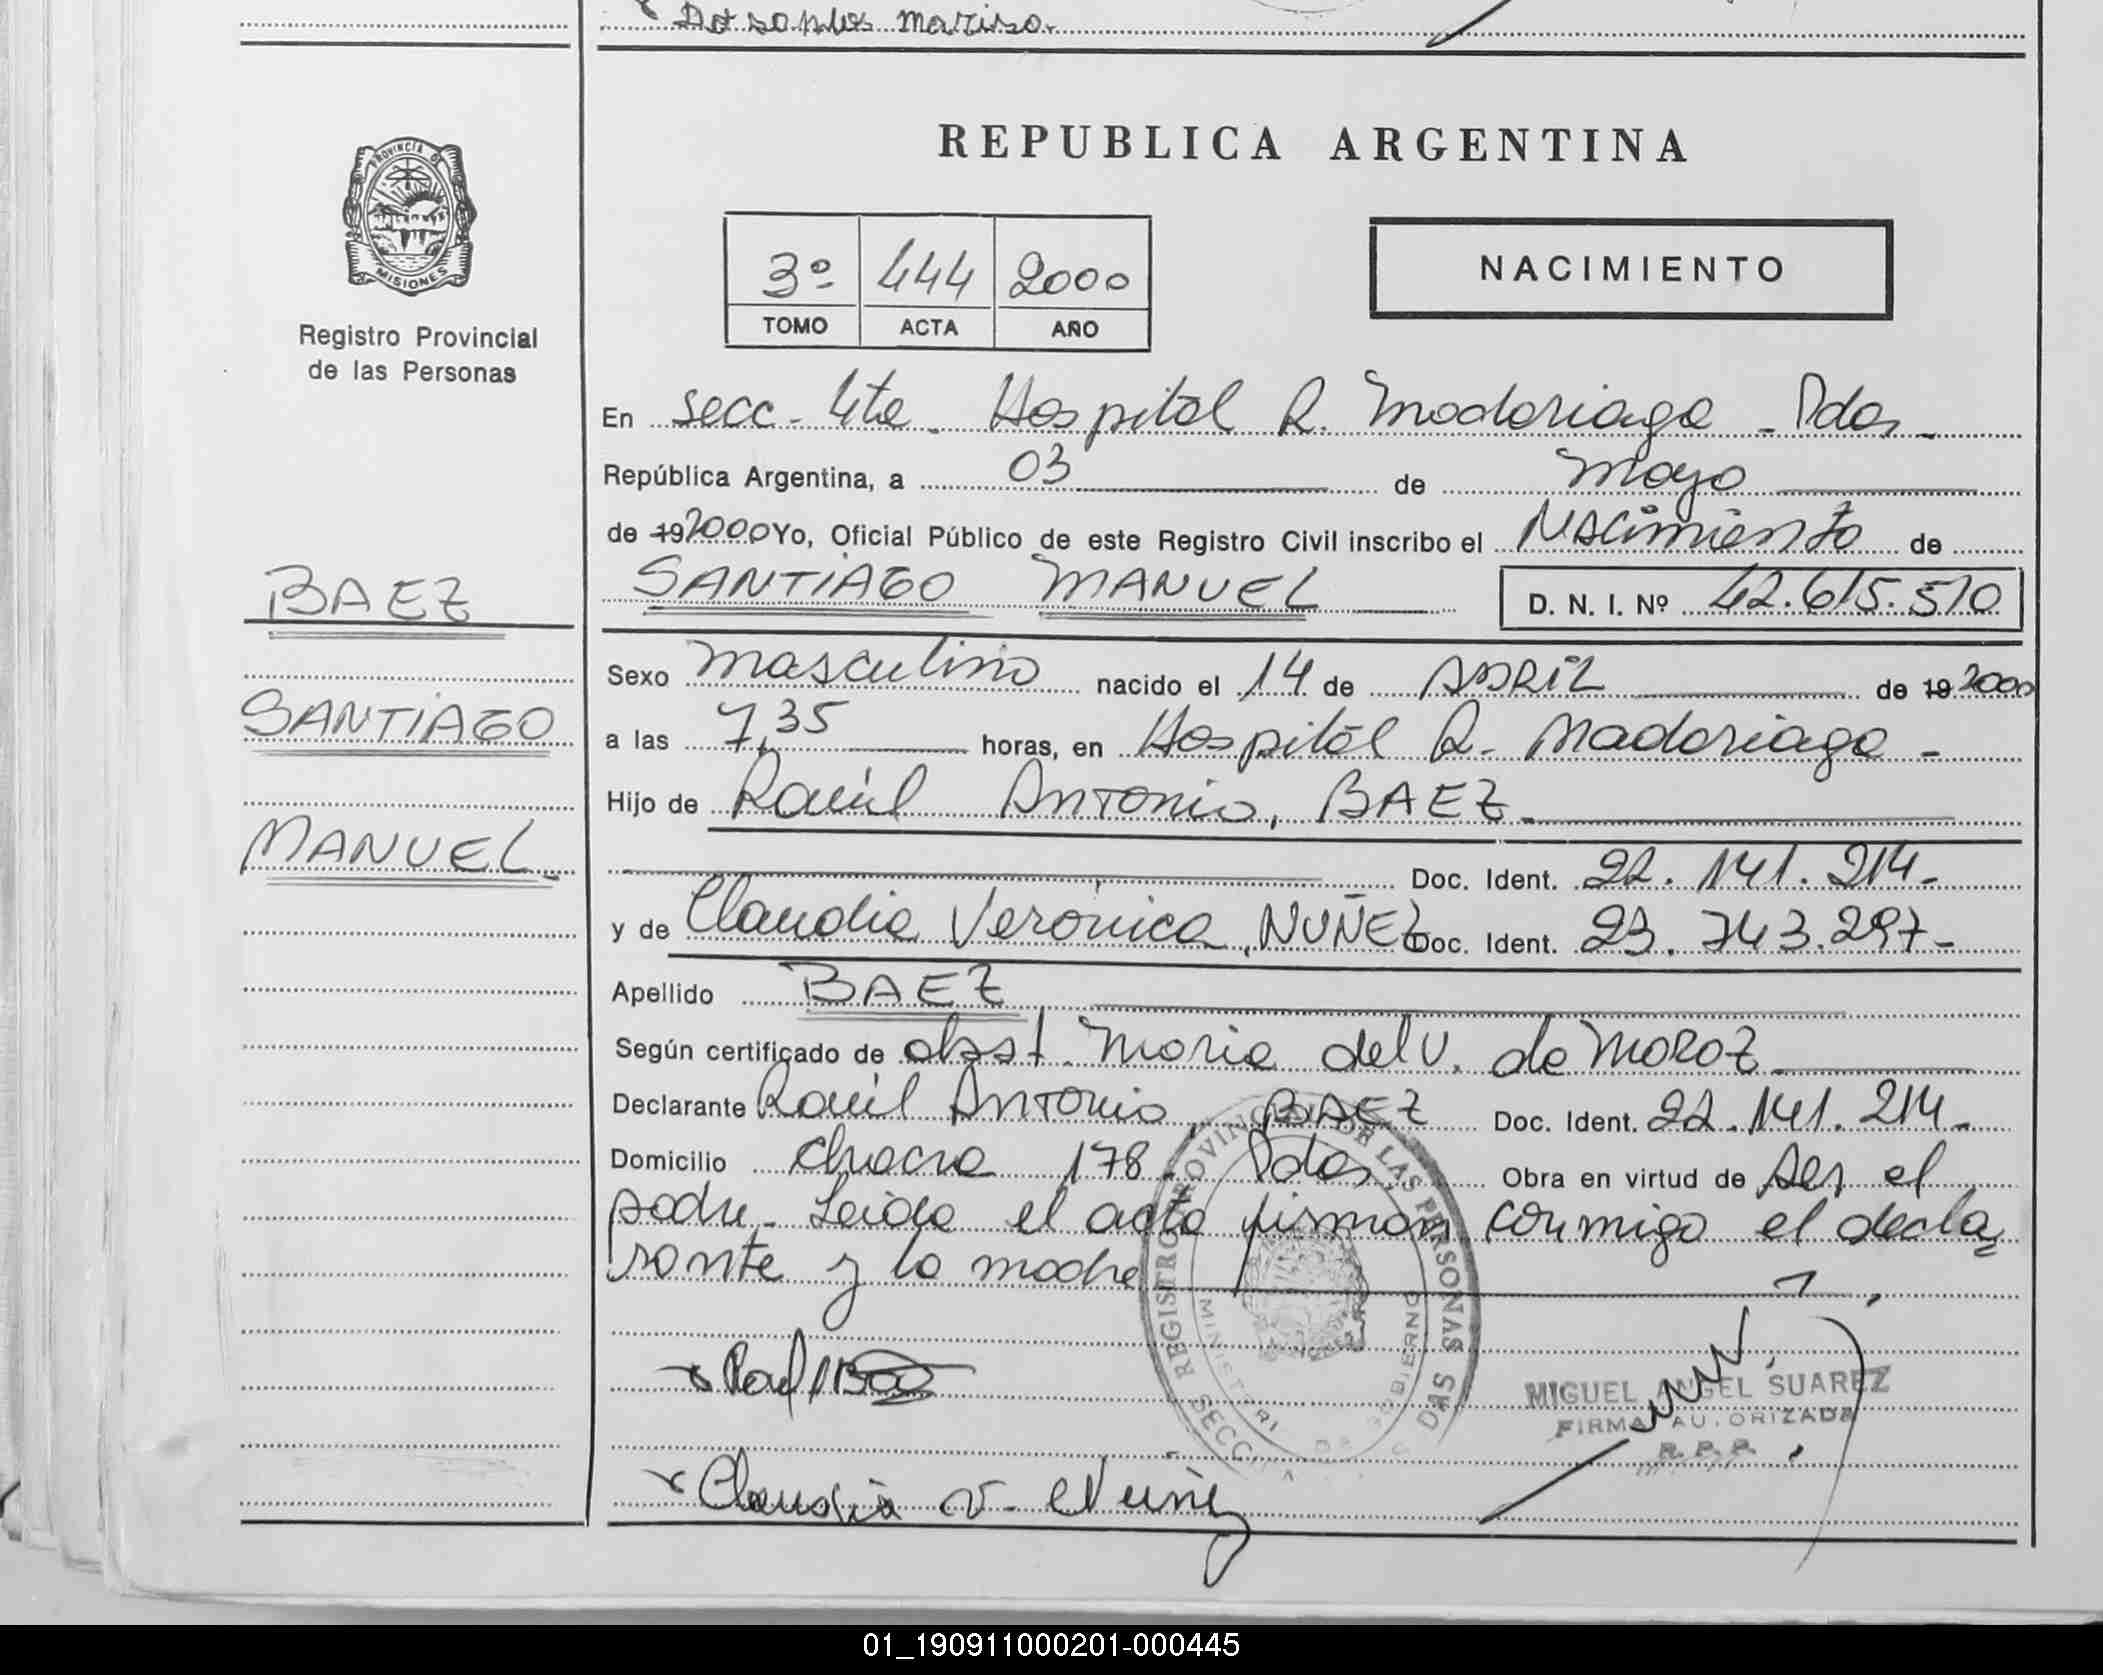 Dos Santos Mariza.
REPUBLICA ARGENTINA
PROVINCIA DE
MISIONES
Registro Provincial
de las Personas
3º 444 2000
TOMO ACTA AÑO
NACIMIENTO
En secc. 4ta. Hospital R. Madariaga - Pdas -
República Argentina, a 03 de Mayo
de 192000 Yo, Oficial Público de este Registro Civil inscribo el Nacimiento de
SANTIAGO MANUEL D. N. I. Nº 42.615.510
BAEZ
SANTIAGO
MANUEL.
Sexo masculino nacido el 14 de ABRIL de 19 2000
a las 7,35 horas, en Hospital R. Madariaga -
Hijo de Raúl Antonio, BAEZ.
Doc. Ident. 22.141.214-
y de Claudia Verónica, NUÑEZ Doc. Ident. 23.743.297-
Apellido BAEZ
Según certificado de obst. Maria del V. de Moroz
Declarante Raúl Antonio, BAEZ Doc. Ident. 22.141.214-
Domicilio Chacra 178 - Pdas. Obra en virtud de ser el
padre. Leída el acta firman conmigo el decla
rante y la madre
REGISTRO PROVINCIAL DE LAS PERSONAS
MINISTERI DE GOBIERNO
Raul Baez
MIGUEL ANGEL SUAREZ
FIRMA AUTORIZADA
R. P. P.
Claudia V. Nuñez
01_190911000201-000445